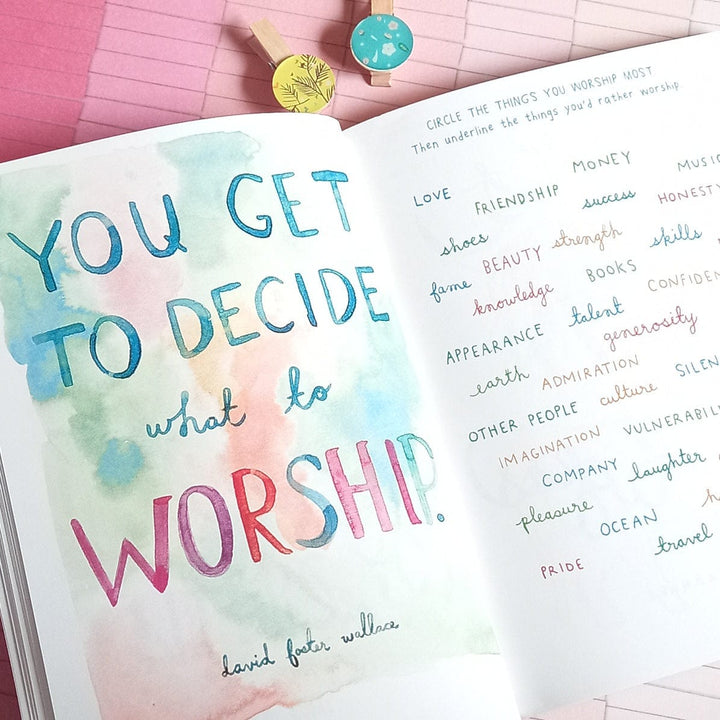 YOU GET
TO DECIDE
what to
WORSHIP.
david foster wallace
CIRCLE THE THINGS YOU WORSHIP MOST
Then underline the things you'd rather worship
LOVE FRIENDSHIP MONEY MUSIC
shoes success HONESTY
fame BEAUTY strength skills
knowledge BOOKS CONFIDEN
APPEARANCE talent generosity
earth ADMIRATION SILEN
OTHER PEOPLE culture
IMAGINATION VULNERABILI
COMPANY laughter
pleasure OCEAN
PRIDE travel